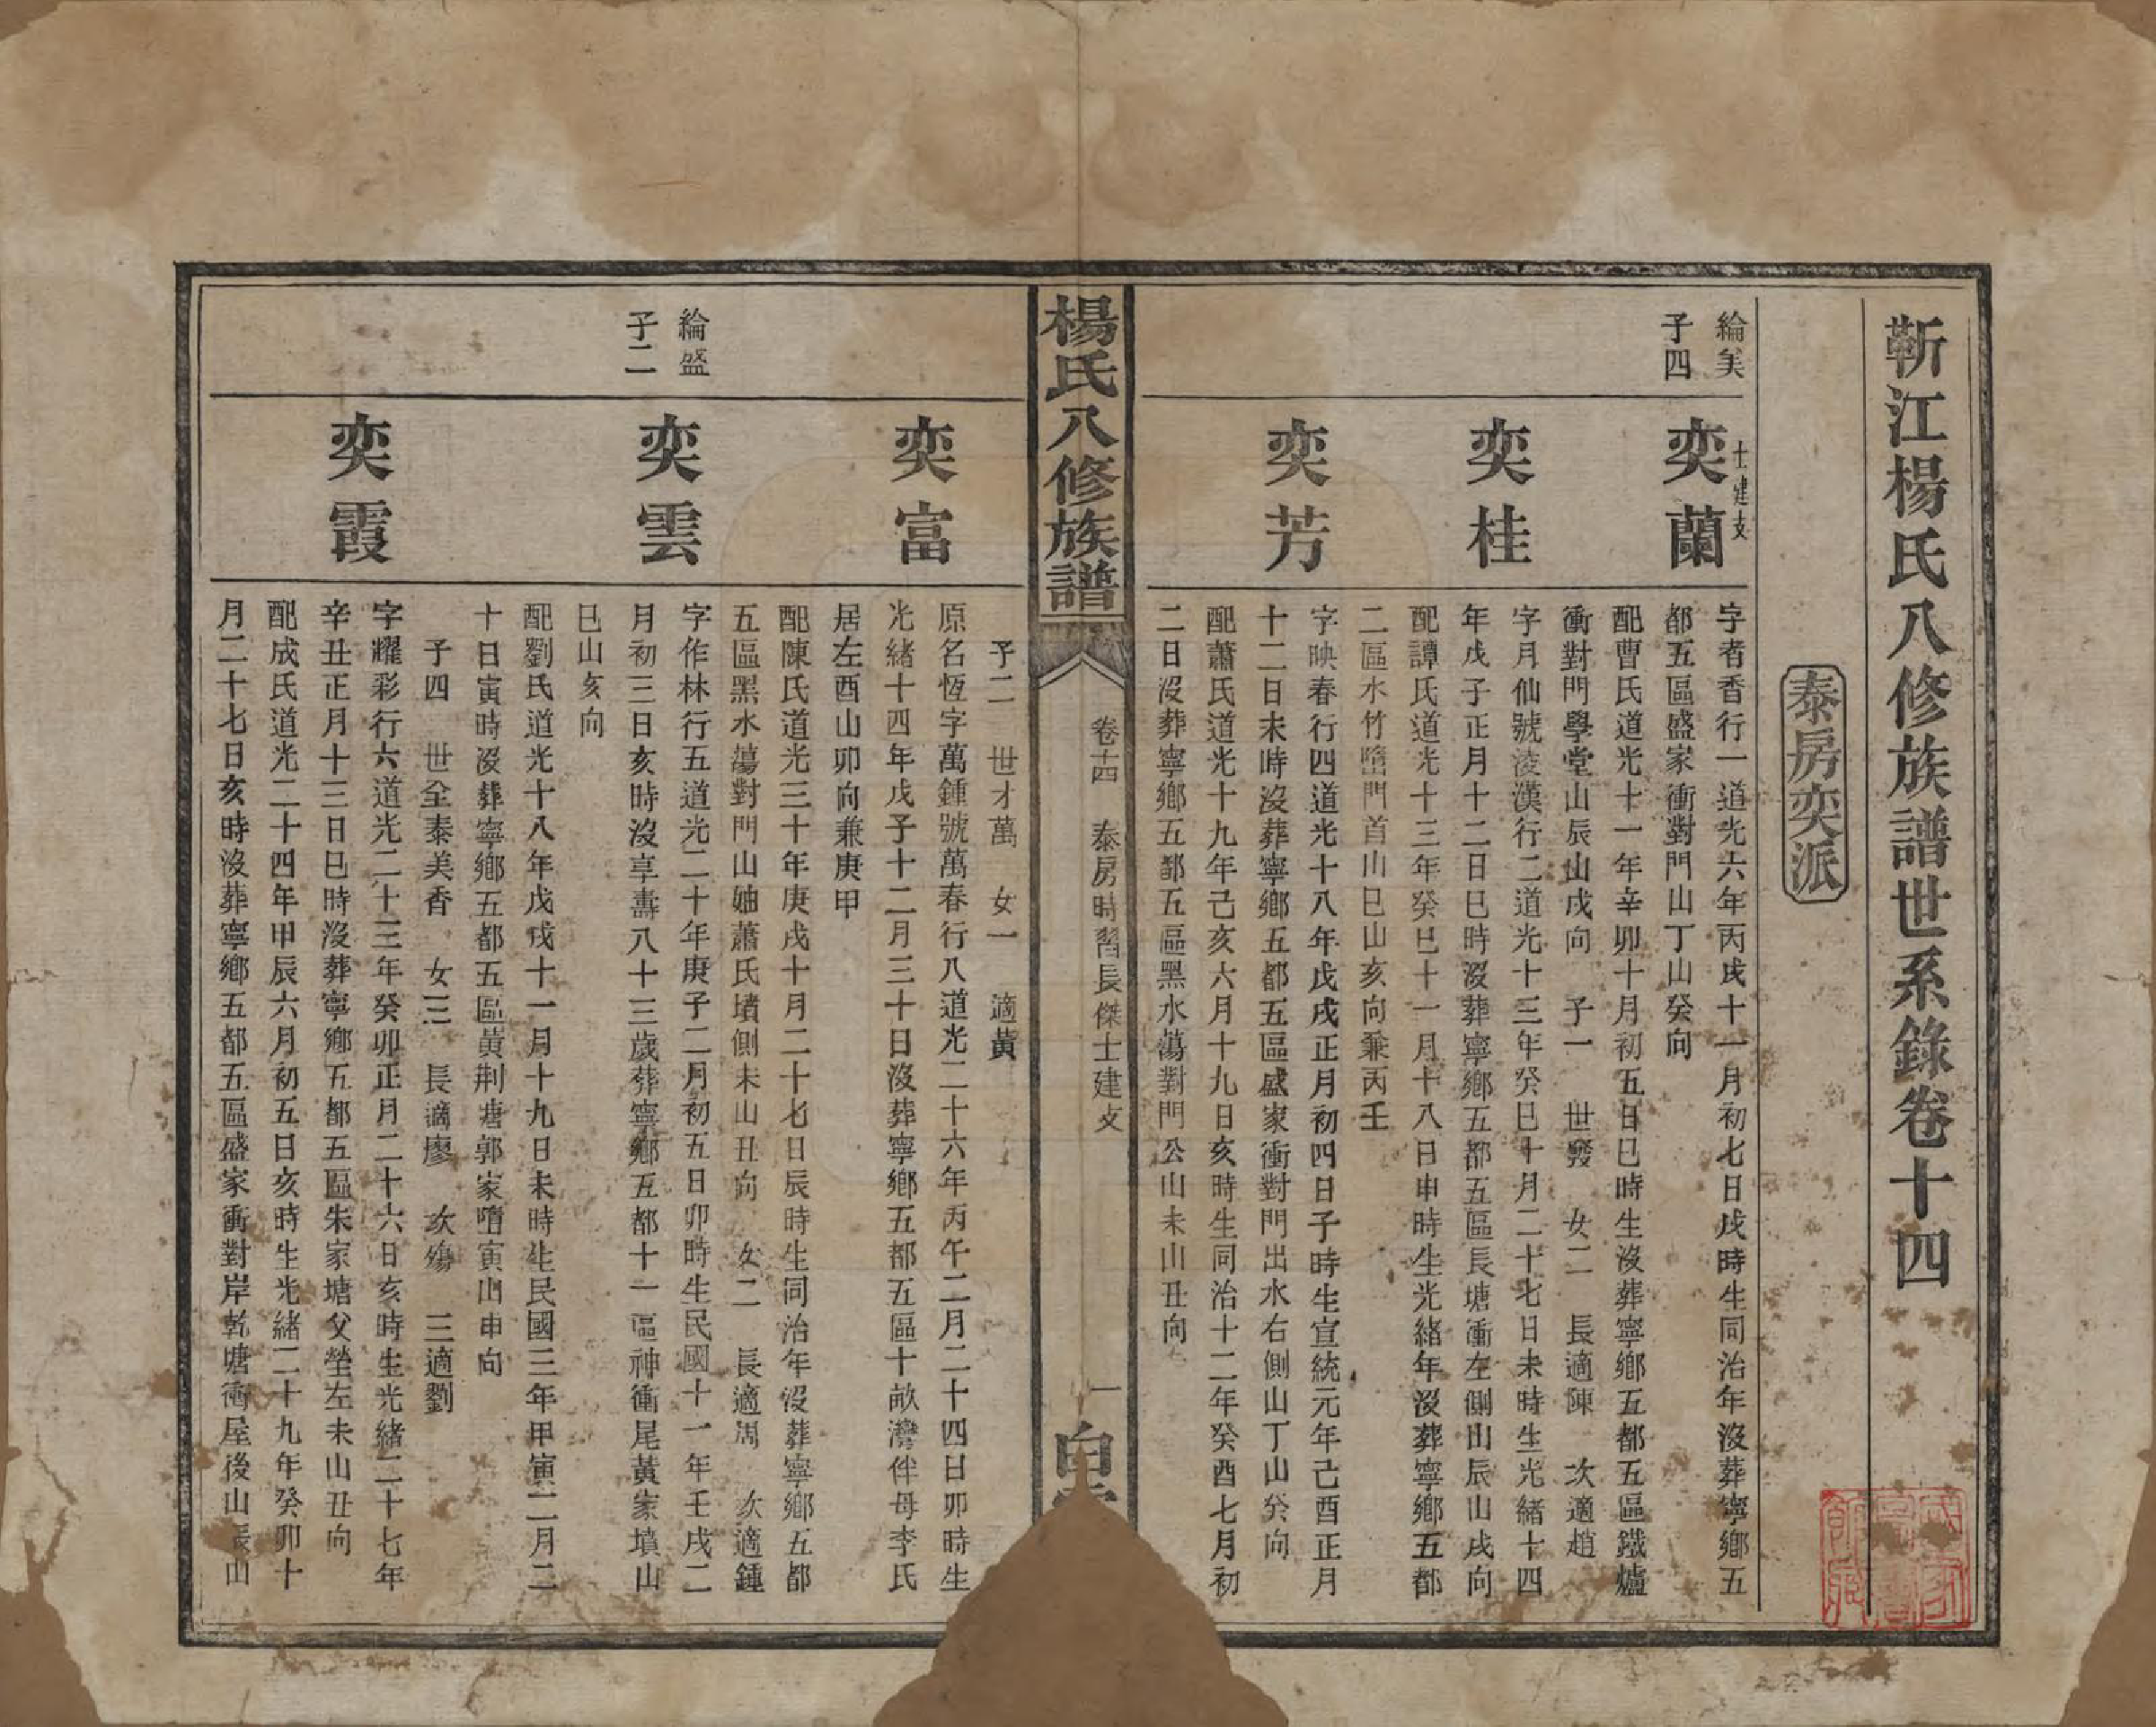 靳江楊氏八修族譜世系錄卷十四
泰房奕派
綸美
子四
士建支
奕蘭
字者香行一道光六年丙戌十一月初七日戌時生同治年沒葬寧鄉五
都五區盛家衝對門山丁山癸向
配曹氏道光十一年辛卯十月初五日巳時生沒葬寧鄉五都五區鐵爐
衝對門學堂山辰山戌向 子一 世發 女二 長適陳 次適趙
奕桂
字月仙號淩漢行二道光十三年癸巳十月二十七日未時生光緒十四
年戊子正月十二日巳時沒葬寧鄉五都五區長塘衝左側山辰山戌向
配譚氏道光十三年癸巳十一月十八日申時生光緒年沒葬寧鄉五都
二區水竹墮門首山巳山亥向兼丙壬
奕芳
字映春行四道光十八年戊戌正月初四日子時生宣統元年己酉正月
十二日未時沒葬寧鄉五都五區盛家衝對門出水右側山丁山癸向
配蕭氏道光十九年己亥六月十九日亥時生同治十二年癸酉七月初
二日沒葬寧鄉五都五區黑水蕩對門公山未山丑向
楊氏八修族譜
卷十四 泰房時習長傑士建支
一
白
子二 世才萬 女一 適黃
奕富
原名恆字萬鍾號萬春行八道光二十六年丙午二月二十四日卯時生
光緒十四年戊子十二月三十日沒葬寧鄉五都五區十畝灣伴母李氏
居左酉山卯向兼庚甲
配陳氏道光三十年庚戌十月二十七日辰時生同治年沒葬寧鄉五都
五區黑水蕩對門山妯蕭氏墳側未山丑向 女二 長適周 次適鍾
綸盛
子二
奕雲
字作林行五道光二十年庚子二月初五日卯時生民國十一年壬戌二
月初三日亥時沒享壽八十三歲葬寧鄉五都十一區神衝尾黃家墳山
巳山亥向
配劉氏道光十八年戊戌十一月十九日未時生民國三年甲寅二月二
十日寅時沒葬寧鄉五都五區黃荆塘郭家㙐寅山申向
子四 世全泰美香 女三 長適廖 次殤 三適劉
奕霞
字耀彩行六道光二十三年癸卯正月二十六日亥時生光緒二十七年
辛丑正月十三日巳時沒葬寧鄉五都五區朱家塘父塋左未山丑向
配成氏道光二十四年甲辰六月初五日亥時生光緒二十九年癸卯十
月二十七日亥時沒葬寧鄉五都五區盛家衝對岸乾塘衝屋後山辰山